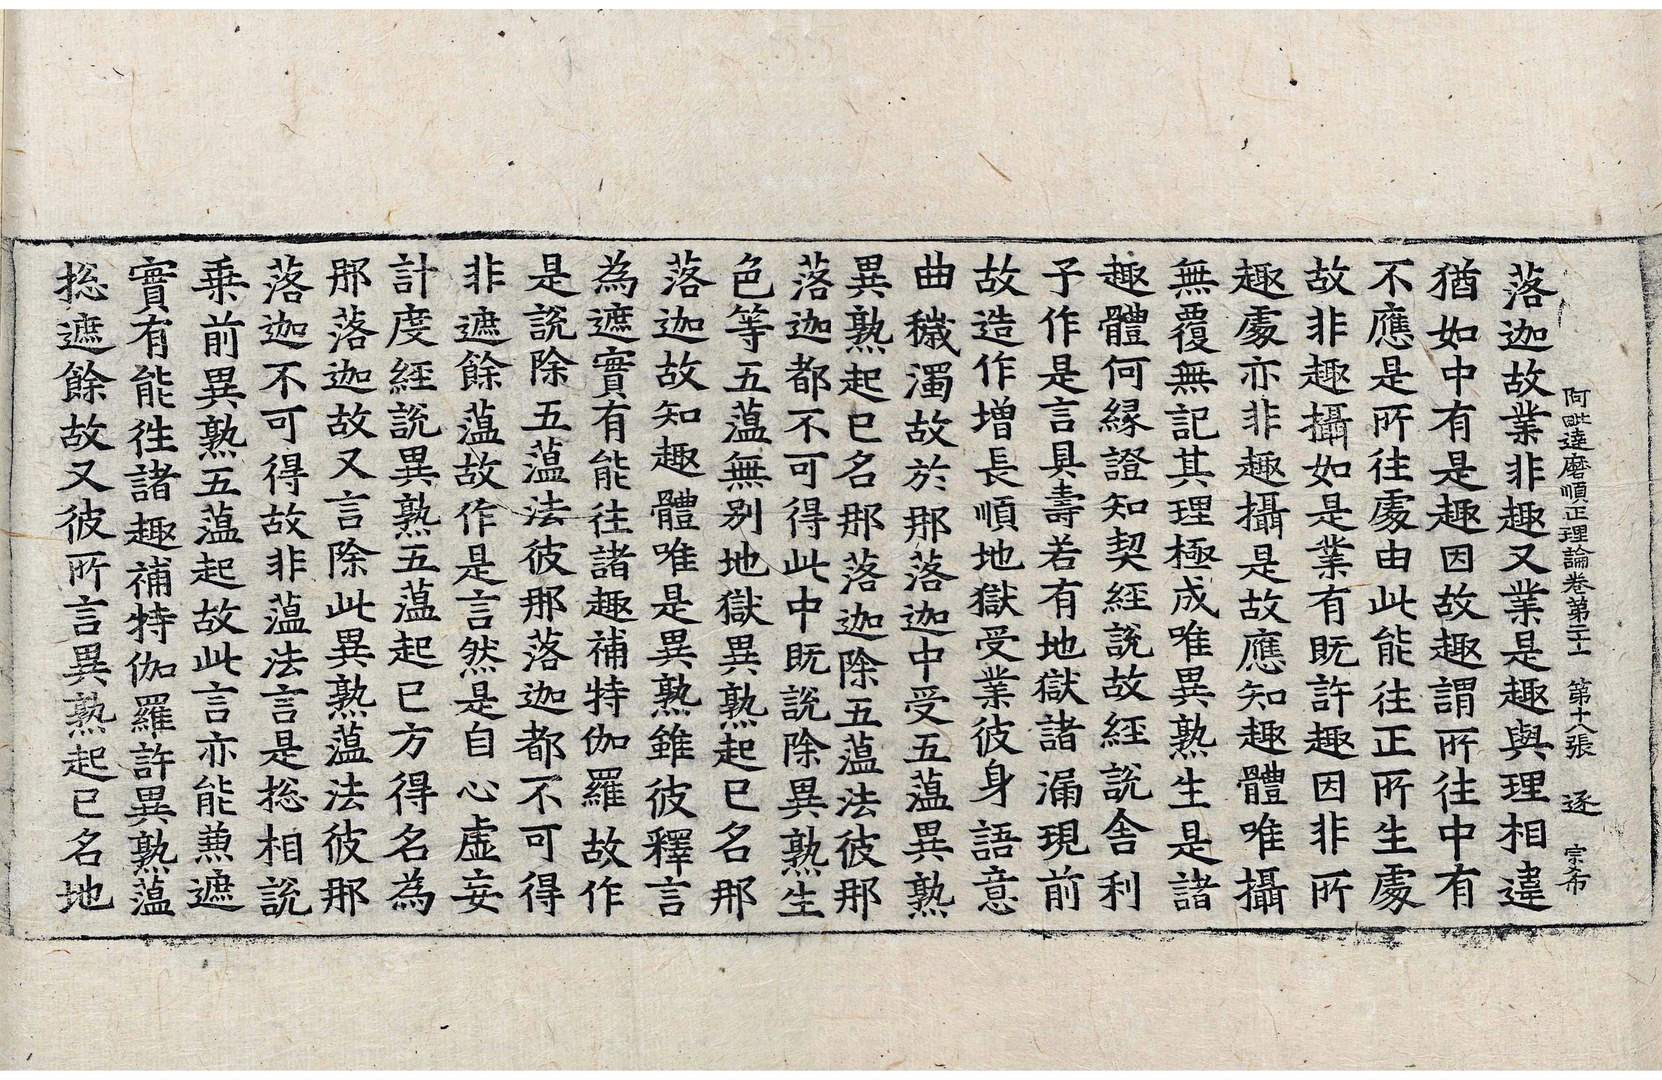 阿毗達磨順正理論卷第二十一 第十八張 逐 宗希
落迦故業非趣又業是趣與理相違
猶如中有是趣因故趣謂所往中有
不應是所往處由此能往正所生處
故非趣攝如是業有既許趣因非所
趣處亦非趣攝是故應知趣體唯攝
無覆無記其理極成唯異熟生是諸
趣體何緣證知契經說故經說舍利
子作是言具壽若有地獄諸漏現前
故造作增長順地獄受業彼身語意
曲穢濁故於那落迦中受五薀異熟
異熟起已名那落迦除五薀法彼那
落迦都不可得此中既說除異熟生
色等五薀無別地獄異熟起已名那
落迦故知趣體唯是異熟雖彼釋言
為遮實有能往諸趣補特伽羅故作
是說除五薀法彼那落迦都不可得
非遮餘薀故作是言然是自心虛妄
計度經說異熟五薀起已方得名為
那落迦故又言除此異熟薀法彼那
落迦不可得故非薀法言是捴相說
乘前異熟五薀起故此言亦能兼遮
實有能往諸趣補特伽羅許異熟薀
捴遮餘故又彼所言異熟起已名地